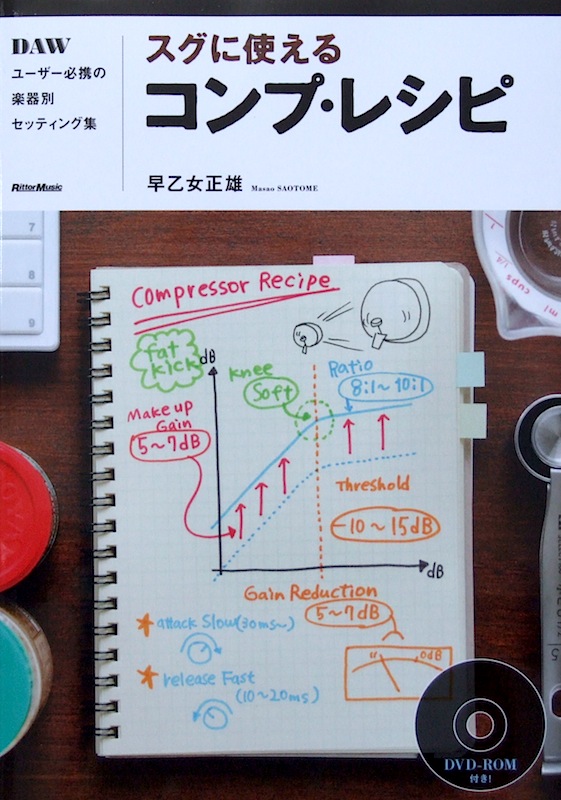 DAW
ユーザー必携の
楽器別
セッティング集
スグに使える
コンプ・レシピ
RittorMusic
早乙女正雄 Masao SAOTOME
7
8
9
1/4
cups
ml
Compressor Recipe
fat
kick
dB
Knee
Soft
Ratio
8:1~10:1
Make up
Gain
5~7dB
Threshold
-10~15dB
dB
Gain Reduction
5~7dB
attack Slow(30ms~)
0dB
release Fast
(10~20ms)
5
DVD-ROM
付き!